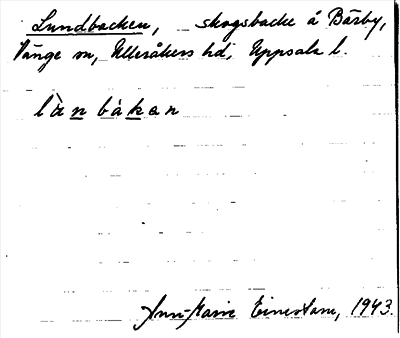 Lundbacken, skogsbacke å Bärby,
Vänge sn, Ulleråkers hd, Uppsala l.
làn bàkan
Ann-Marie Einestam, 1943.